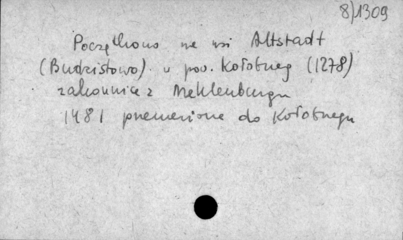 8/1309
Początkowo na wsi Altstadt
(Budzistowo) u pow. Kołobrzeg (1278)
zakonnice z Meklenburgu
1481 przeniesione do Kołobrzegu